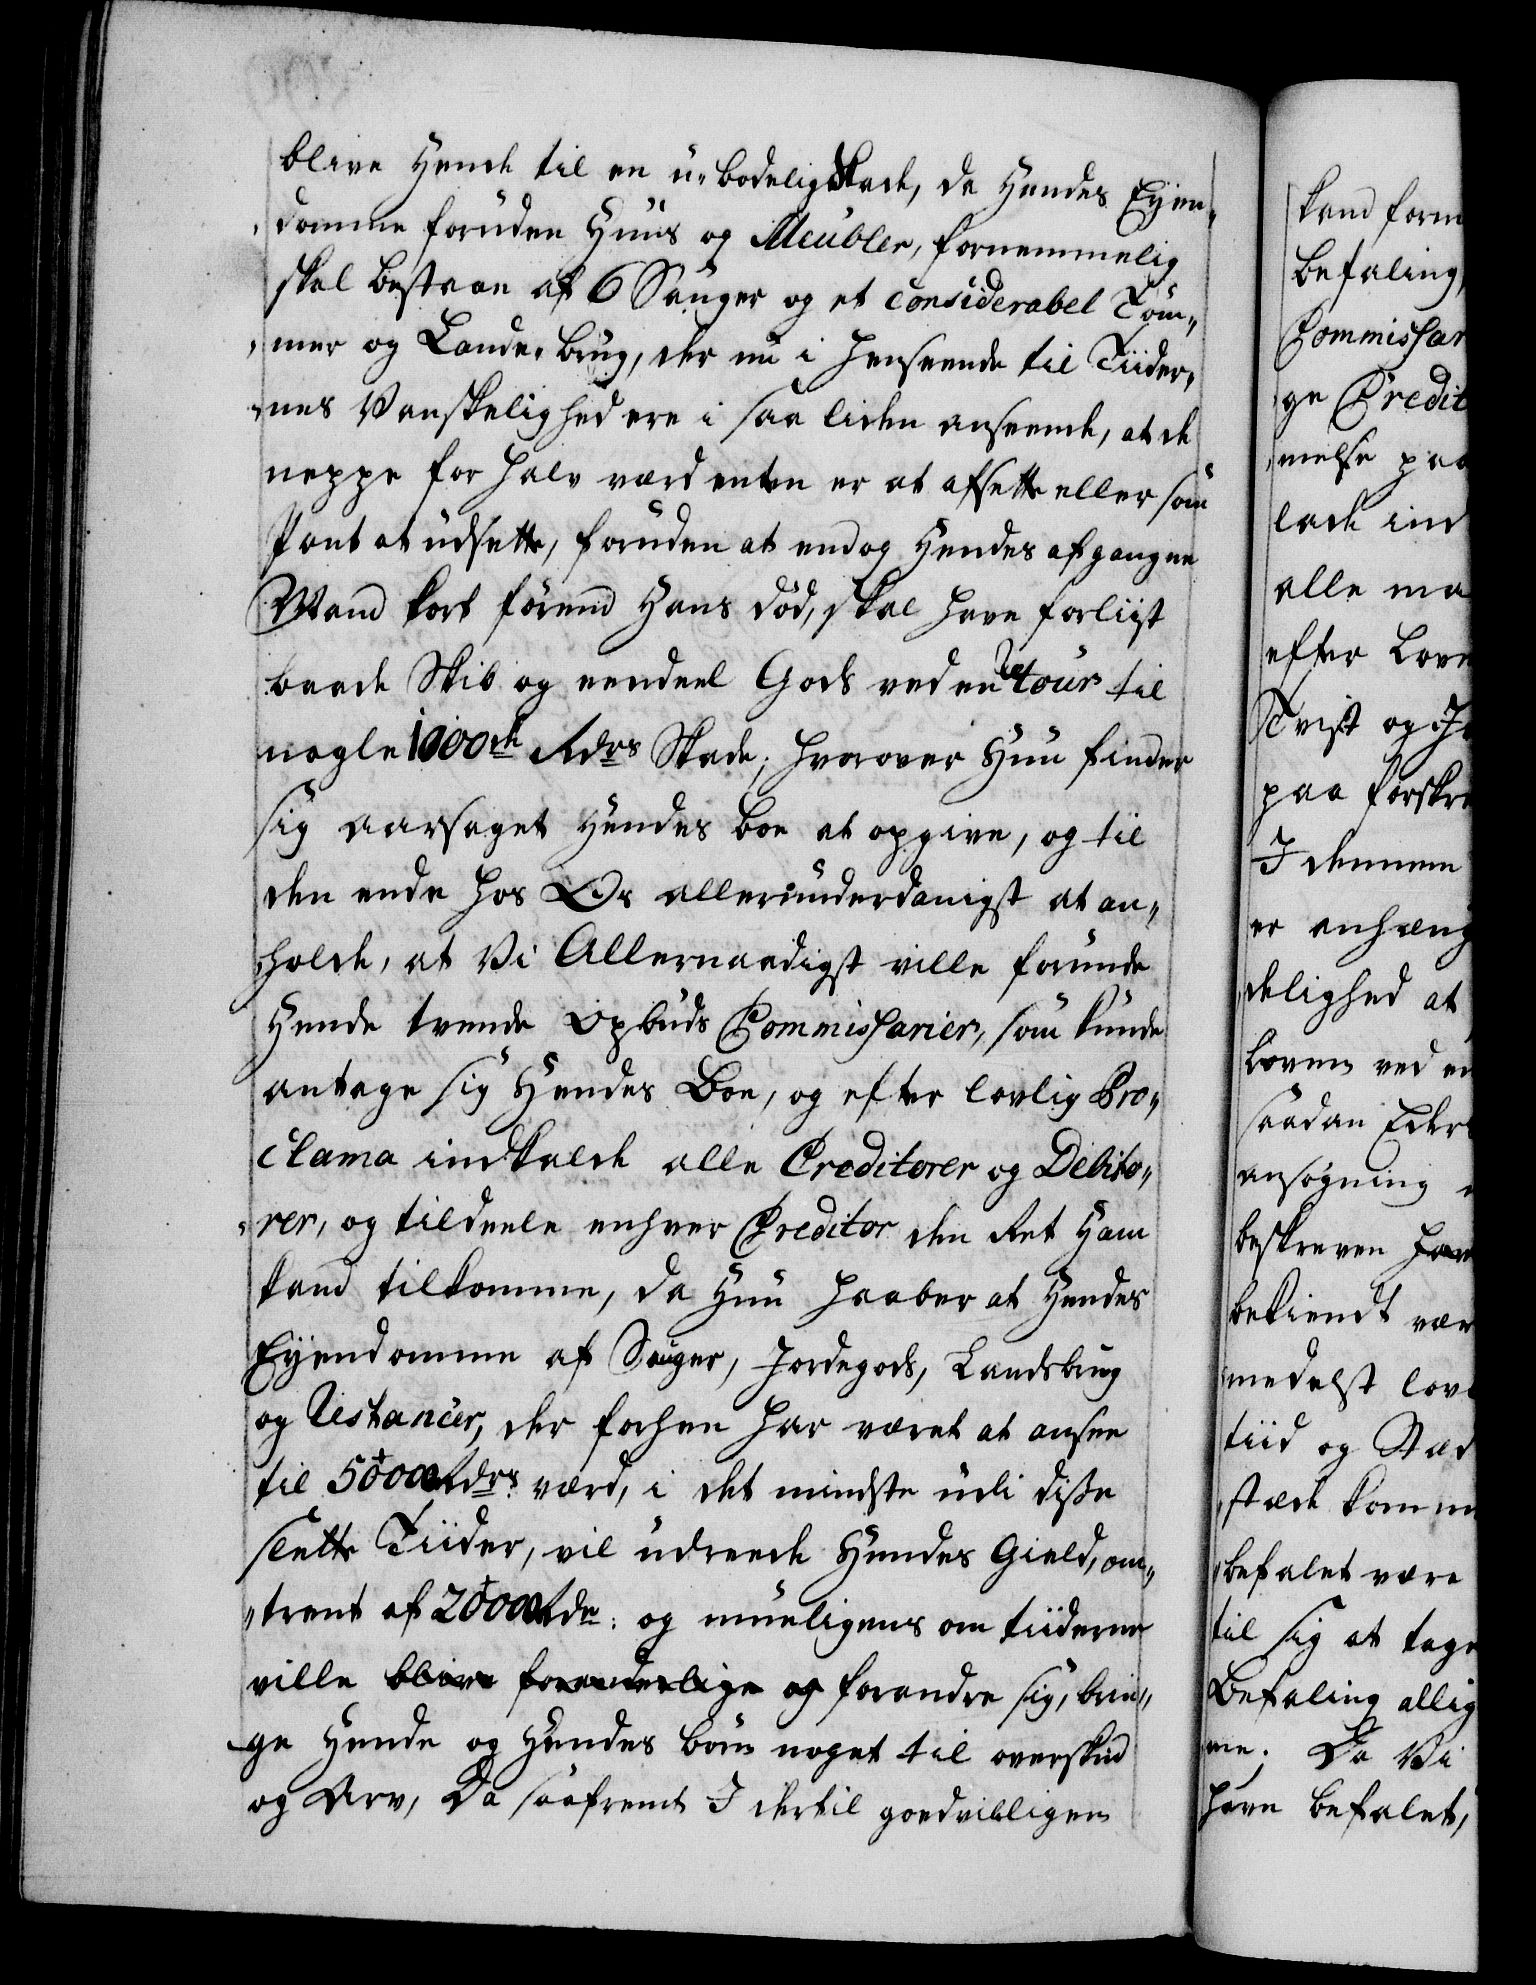 blive Hende til en u-bodelig Skade, da Hendes Eyen„
domme foruden Huus og Meubler, fornemmelig
skal bestaae af 6 Sauger og et considerabel Tøm„
„mer og Lande-brug, der nu i henseende til Tiider„
„nes Vanskelighed ere i saa liden anseende, at de
neppe for halv værd enten er at afsette eller som
Pant at udsette, foruden at endog Hendes afgangne
Mand kort førend Hans død, skal have forliist
baade Skib og eendeel Gods ved en Retour til
nogle 1000de Rdrs Skade; hvorover Hun finder
sig aarsaget Hendes boe at opgive, og til
den ende hos Os allerunderdanigst at an„
holde, at Vi Allernaadigst ville forunde
Hende tvende Opbuds Commissarier, som kunde
antage sig Hendes Boe, og efter lovlig Pro„
clama indkalde alle Creditorer og Debito„
„rer, og tildeele enhver Creditor den Ret Ham
kand tilkomme, da Hun haaber at Hendes
Eyendomme af Sauger, Jordegods, Landsbrug
og Uistancer, der forhen har været at ansee
til 50000 Rdrs værd, i det mindste udi disse
slette Tiider, vil udreede Hendes Gield, om„
„trent af 20000 Rdr: og mueligens om tiiderne
ville blive foranderlige og forandre sig, brin„
ge Hende og Hendes børn noget til overskud
og Arv, Da saafremt I dertil goedvilligen
kand form
befaling,
Commissar
ge Credit
melse paa
lade ind
alle ma
efter Lov
Tvist og I
paa forskre
I dennem
er anhæng
delighed at
Loven ved en
saadan Eders
ansøgning
beskreven har
bekiendt vær
medelst lov
tiid og Stæd
stæde komm
befalet være
til sig at tage
Befaling allig
me. Da Vi
have befalet,